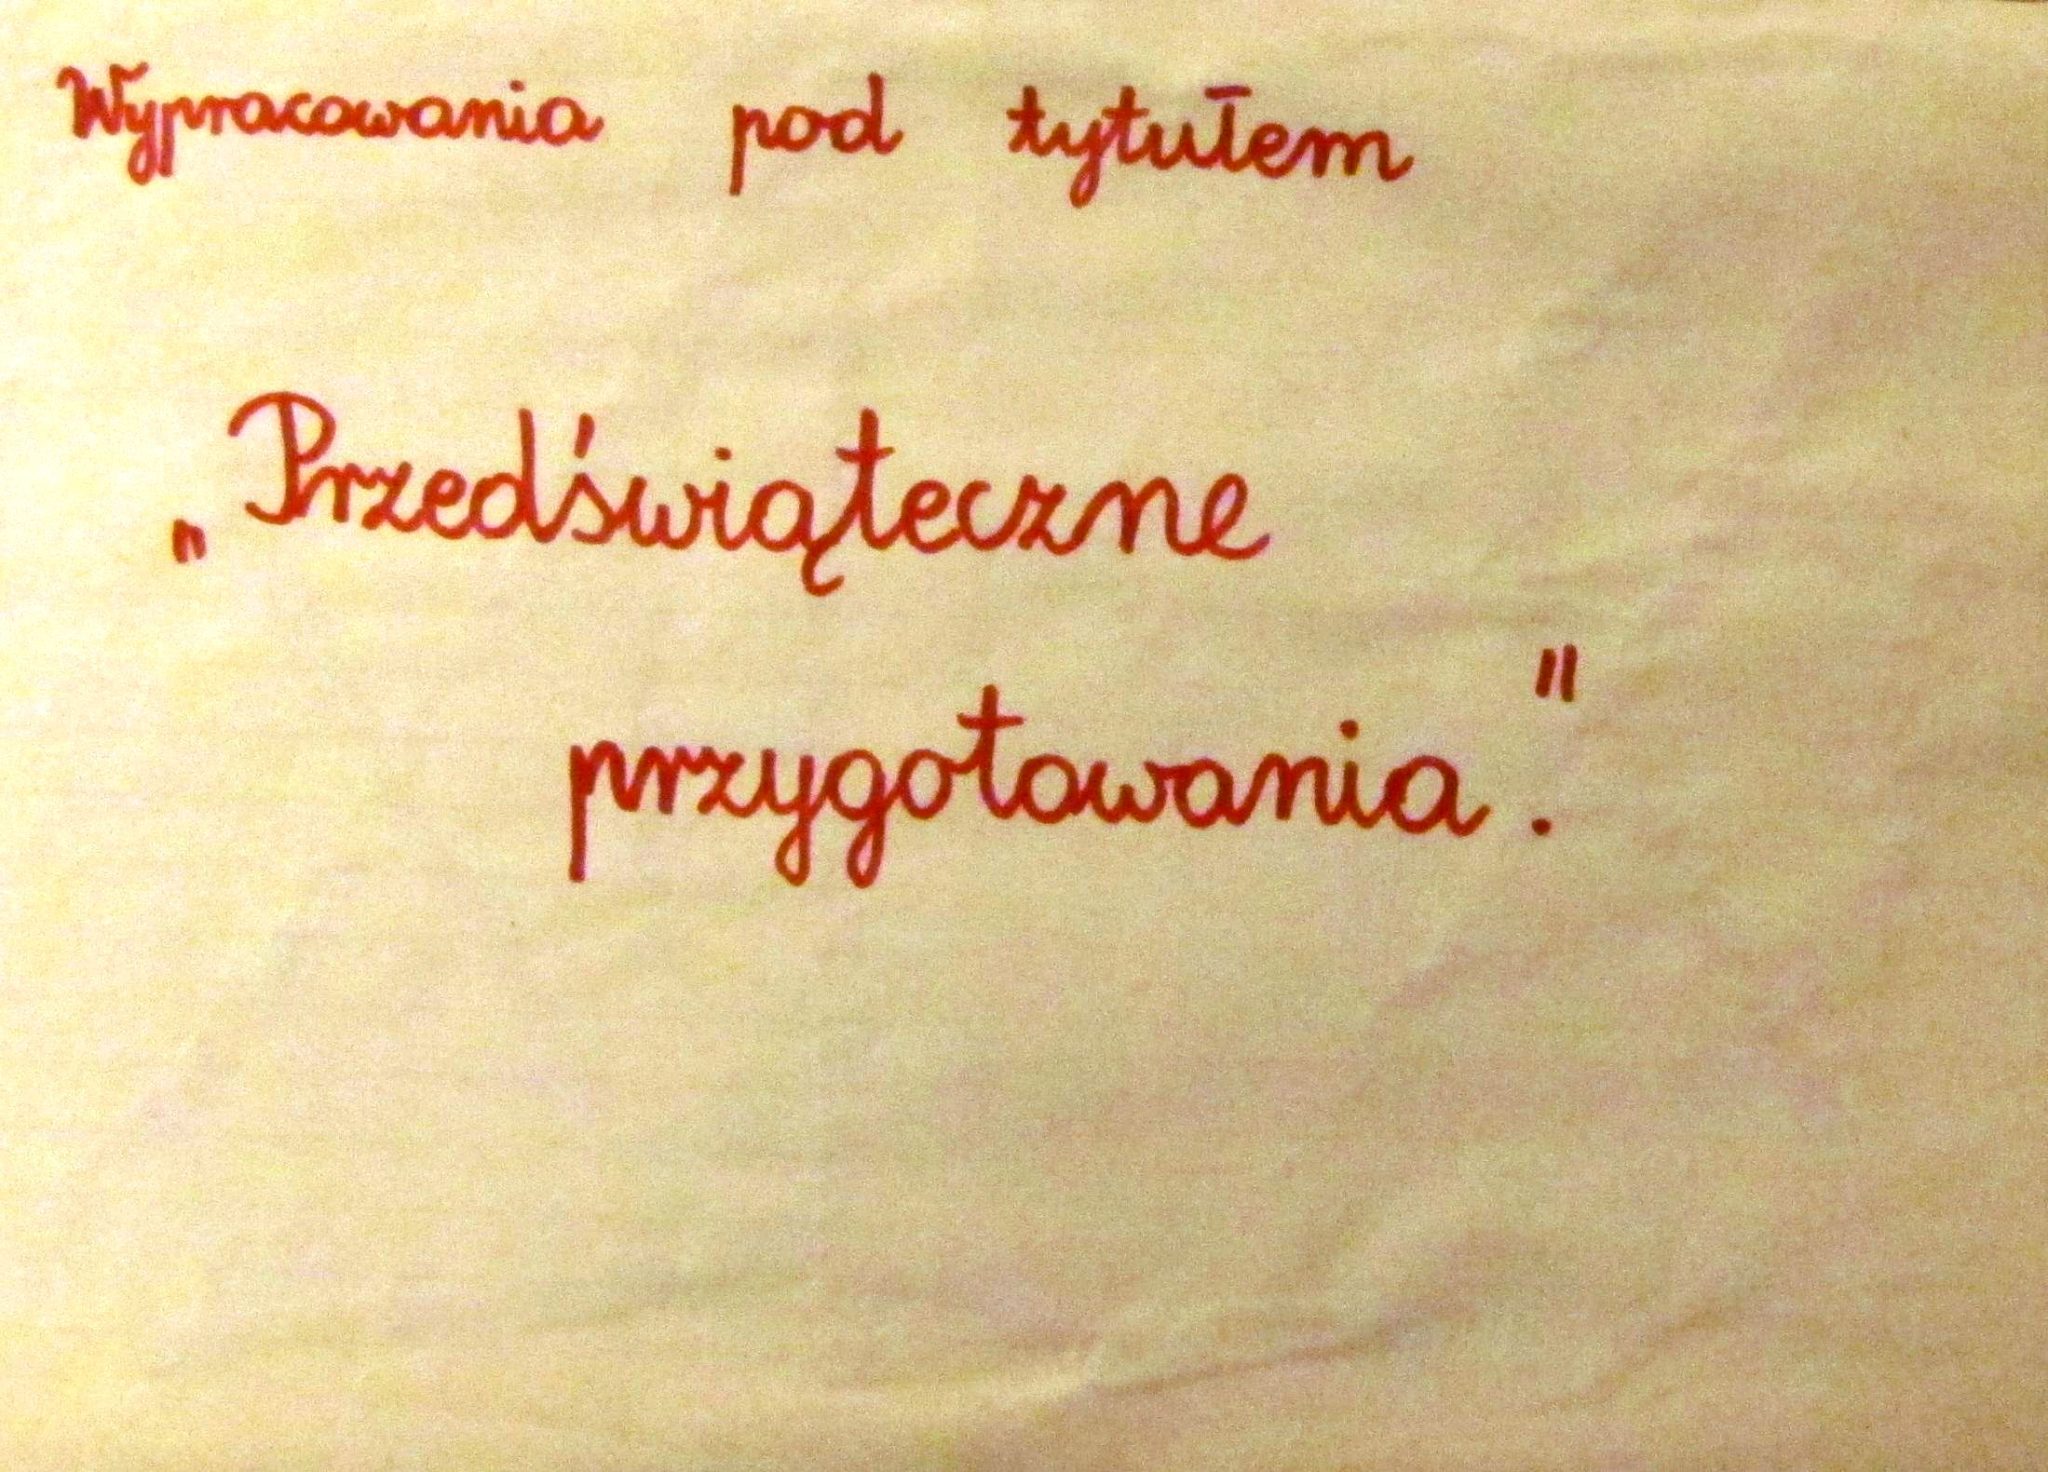 Wypracowania pod tytułem
„Przedświąteczne
przygotowania."